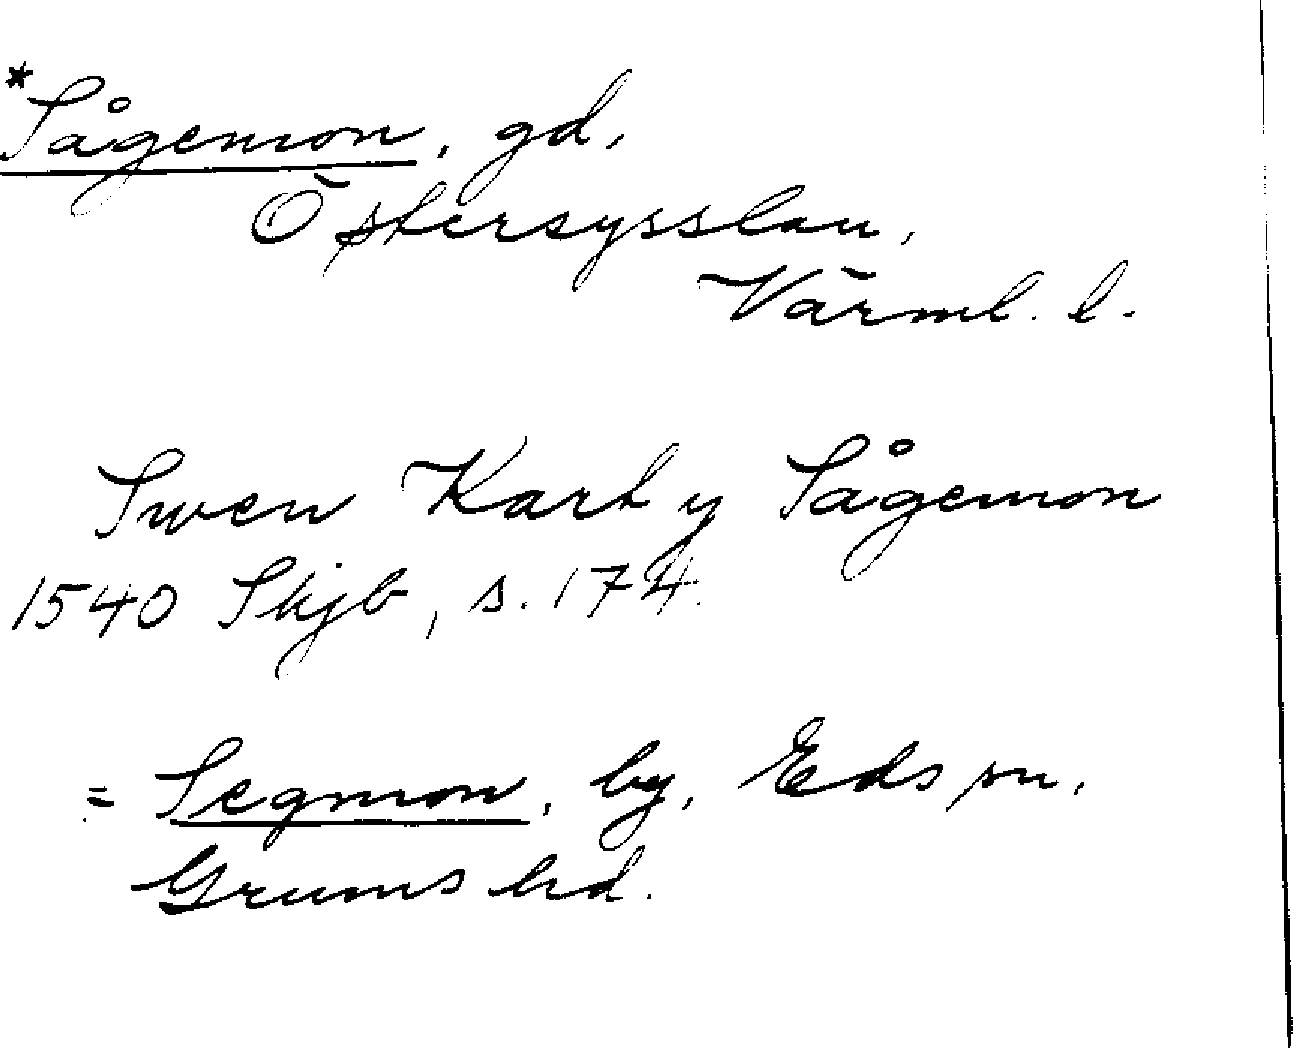 *Sågemon, gd,
Östersysslau,
Värml. l.
Swen Karl y Sågemon
1540 Skjb, s. 174.
= Segmon, by, Eds sn,
Grums hd.